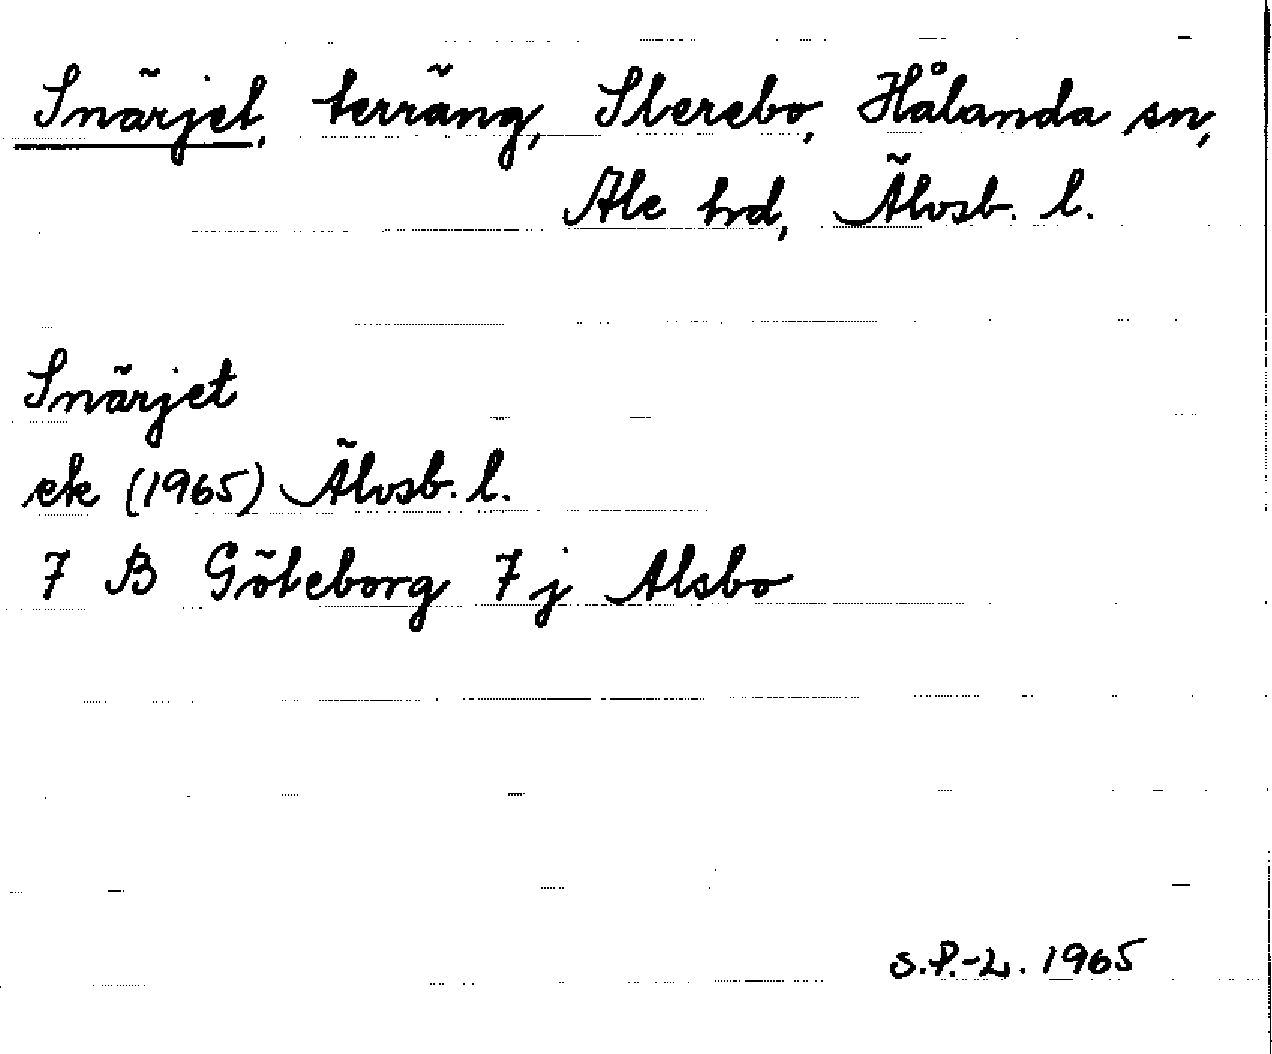 Snärjet, terräng, Sterebo, Hålanda sn,
Ale hd, Älvsb. l.
Snärjet
ek (1965) Älvsb. l.
7 B Göteborg 7 j Alsbo
S.P.-L. 1965